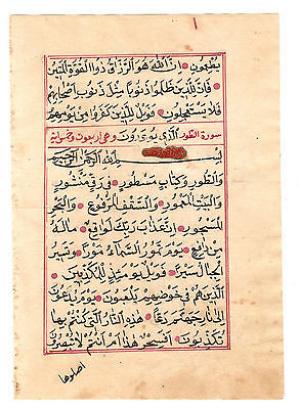 يطعمون ان الله هو الرزاق ذوا القوة المتين
فان للذين ظلموا ذنوبا مثل ذنوب اصحابهم
فلا يستعجلون فويل للذين كفروا من يومهم
سورة الطور الذي يوعدون وهي اربعون
بسم الله الرحمن الرحيم
والطور وكتاب مسطور في رق منشور
والبيت المعمور والسقف المرفوع والبحر
المسجور ان عذاب ربك لواقع ماله
من دافع يوم تمور السماء مورا وتسير
الجبال سيرا فويل يومئذ للمكذبين
الذين هم في خوضهم يلعبون يوم يدعون
الى نار جهنم دعا هذه النار التي كنتم بها
تكذبون افسحر هذا ام انتم لا تبصرون
اصلوها